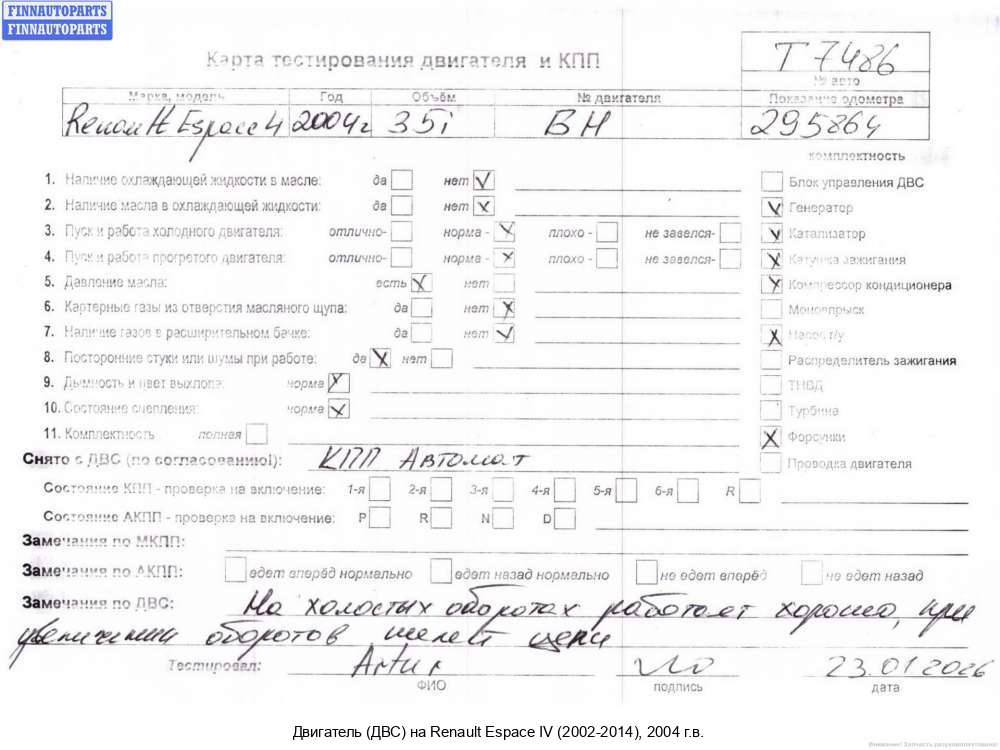 FINNAUTOPARTS
FINNAUTOPARTS
Карта тестирования двигателя и КПП
T 7486
№ авто
Марка, модель Год Объём № двигателя Показание одометра
Renault Espace 4 2004г 3.5i BH 295864
комплектность
1. Наличие охлаждающей жидкости в масле: да нет Блок управления ДВС
2. Наличие масла в охлаждающей жидкости: да нет Генератор
3. Пуск и работа холодного двигателя: отлично- норма - плохо - не завелся- Катализатор
4. Пуск и работа прогретого двигателя: отлично- норма - плохо - не завелся- Катушка зажигания
5. Давление масла: есть нет Компрессор кондиционера
6. Картерные газы из отверстия масляного щупа: да нет Моновпрыск
7. Наличие газов в расширительном бачке: да нет Насос г/у
8. Посторонние стуки или шумы при работе: да нет Распределитель зажигания
9. Дымность и цвет выхлопа: норма ТНВД
10. Состояние сцепления: норма Турбина
11. Комплектность полная Форсунки
Снято с ДВС (по согласованию!): КПП Автомат Проводка двигателя
Состояние КПП - проверка на включение: 1-я 2-я 3-я 4-я 5-я 6-я R
Состояние АКПП - проверка на включение: P R N D
Замечания по МКПП:
Замечания по АКПП: едет вперёд нормально едет назад нормально не едет вперёд не едет назад
Замечания по ДВС: На холостых оборотах работает хорошо, при
увеличении оборотов шелест цепи
Тестировал: Artur 23.01.2026
ФИО подпись дата
Двигатель (ДВС) на Renault Espace IV (2002-2014), 2004 г.в.
Внимание! Запчасть разукомплектована!